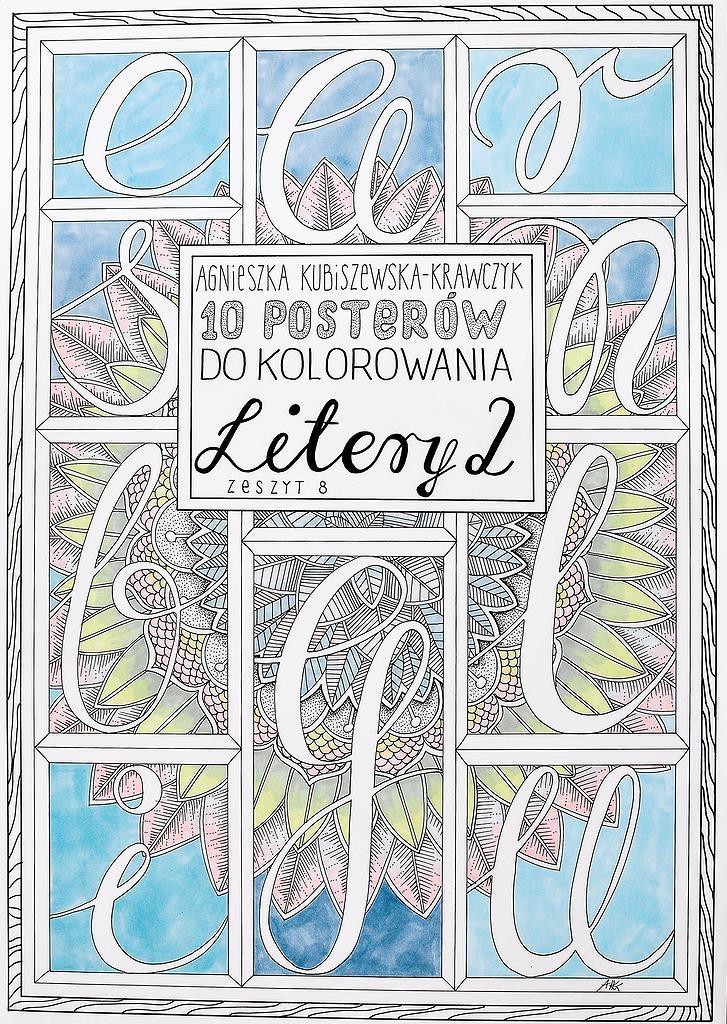 e a r
AGNIESZKA KUBISZEWSKA-KRAWCZYK
10 POSTERÓW
DO KOLOROWANIA
Litery 2
ZESZYT 8
s n
b l
i g u